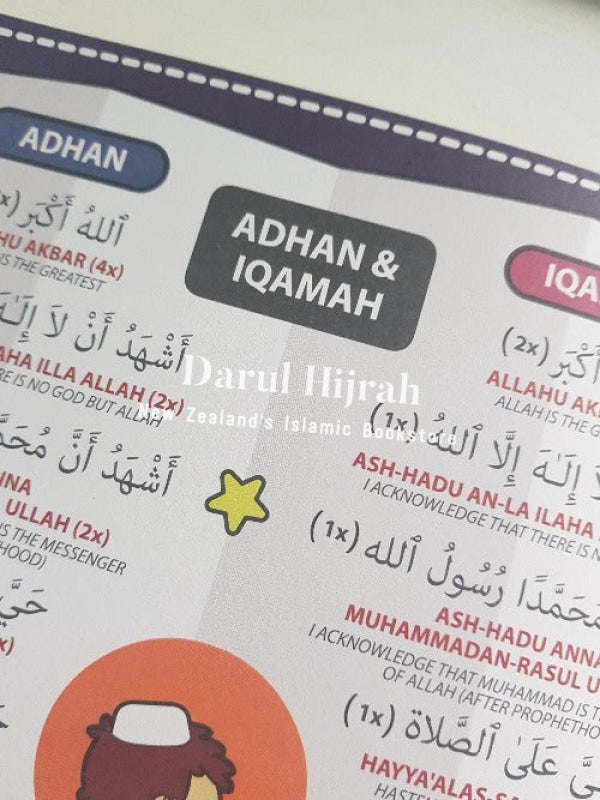 ADHAN
ٱللهُ أَكْبَر
HU AKBAR (4x)
IS THE GREATEST
أَشْهَدُ أَنْ لَا إِلَـٰهَ
AHA ILLA ALLAH (2x)
RE IS NO GOD BUT ALLAH
أَشْهَدُ أَنَّ
NNA
ULLAH (2x)
IS THE MESSENGER
HOOD)
حَيَّ
ADHAN &
IQAMAH
Darul Hijrah
New Zealand's Islamic Bookstore
IQA
(2x) أَكْبَر
ALLAHU AK
ALLAH IS THE G
إِلَـٰهَ إِلَّا ٱللهُ (1x)
ASH-HADU AN-LA ILAHA
I ACKNOWLEDGE THAT THERE IS N
مُحَمَّدًا رُسُولُ ٱلله (1x)
ASH-HADU ANNA
MUHAMMADAN-RASUL U
I ACKNOWLEDGE THAT MUHAMMAD IS T
OF ALLAH (AFTER PROPHETHO
عَلَىٰ ٱلصَّلَاة (1x)
HAYYA'ALAS-SA
HASTEN